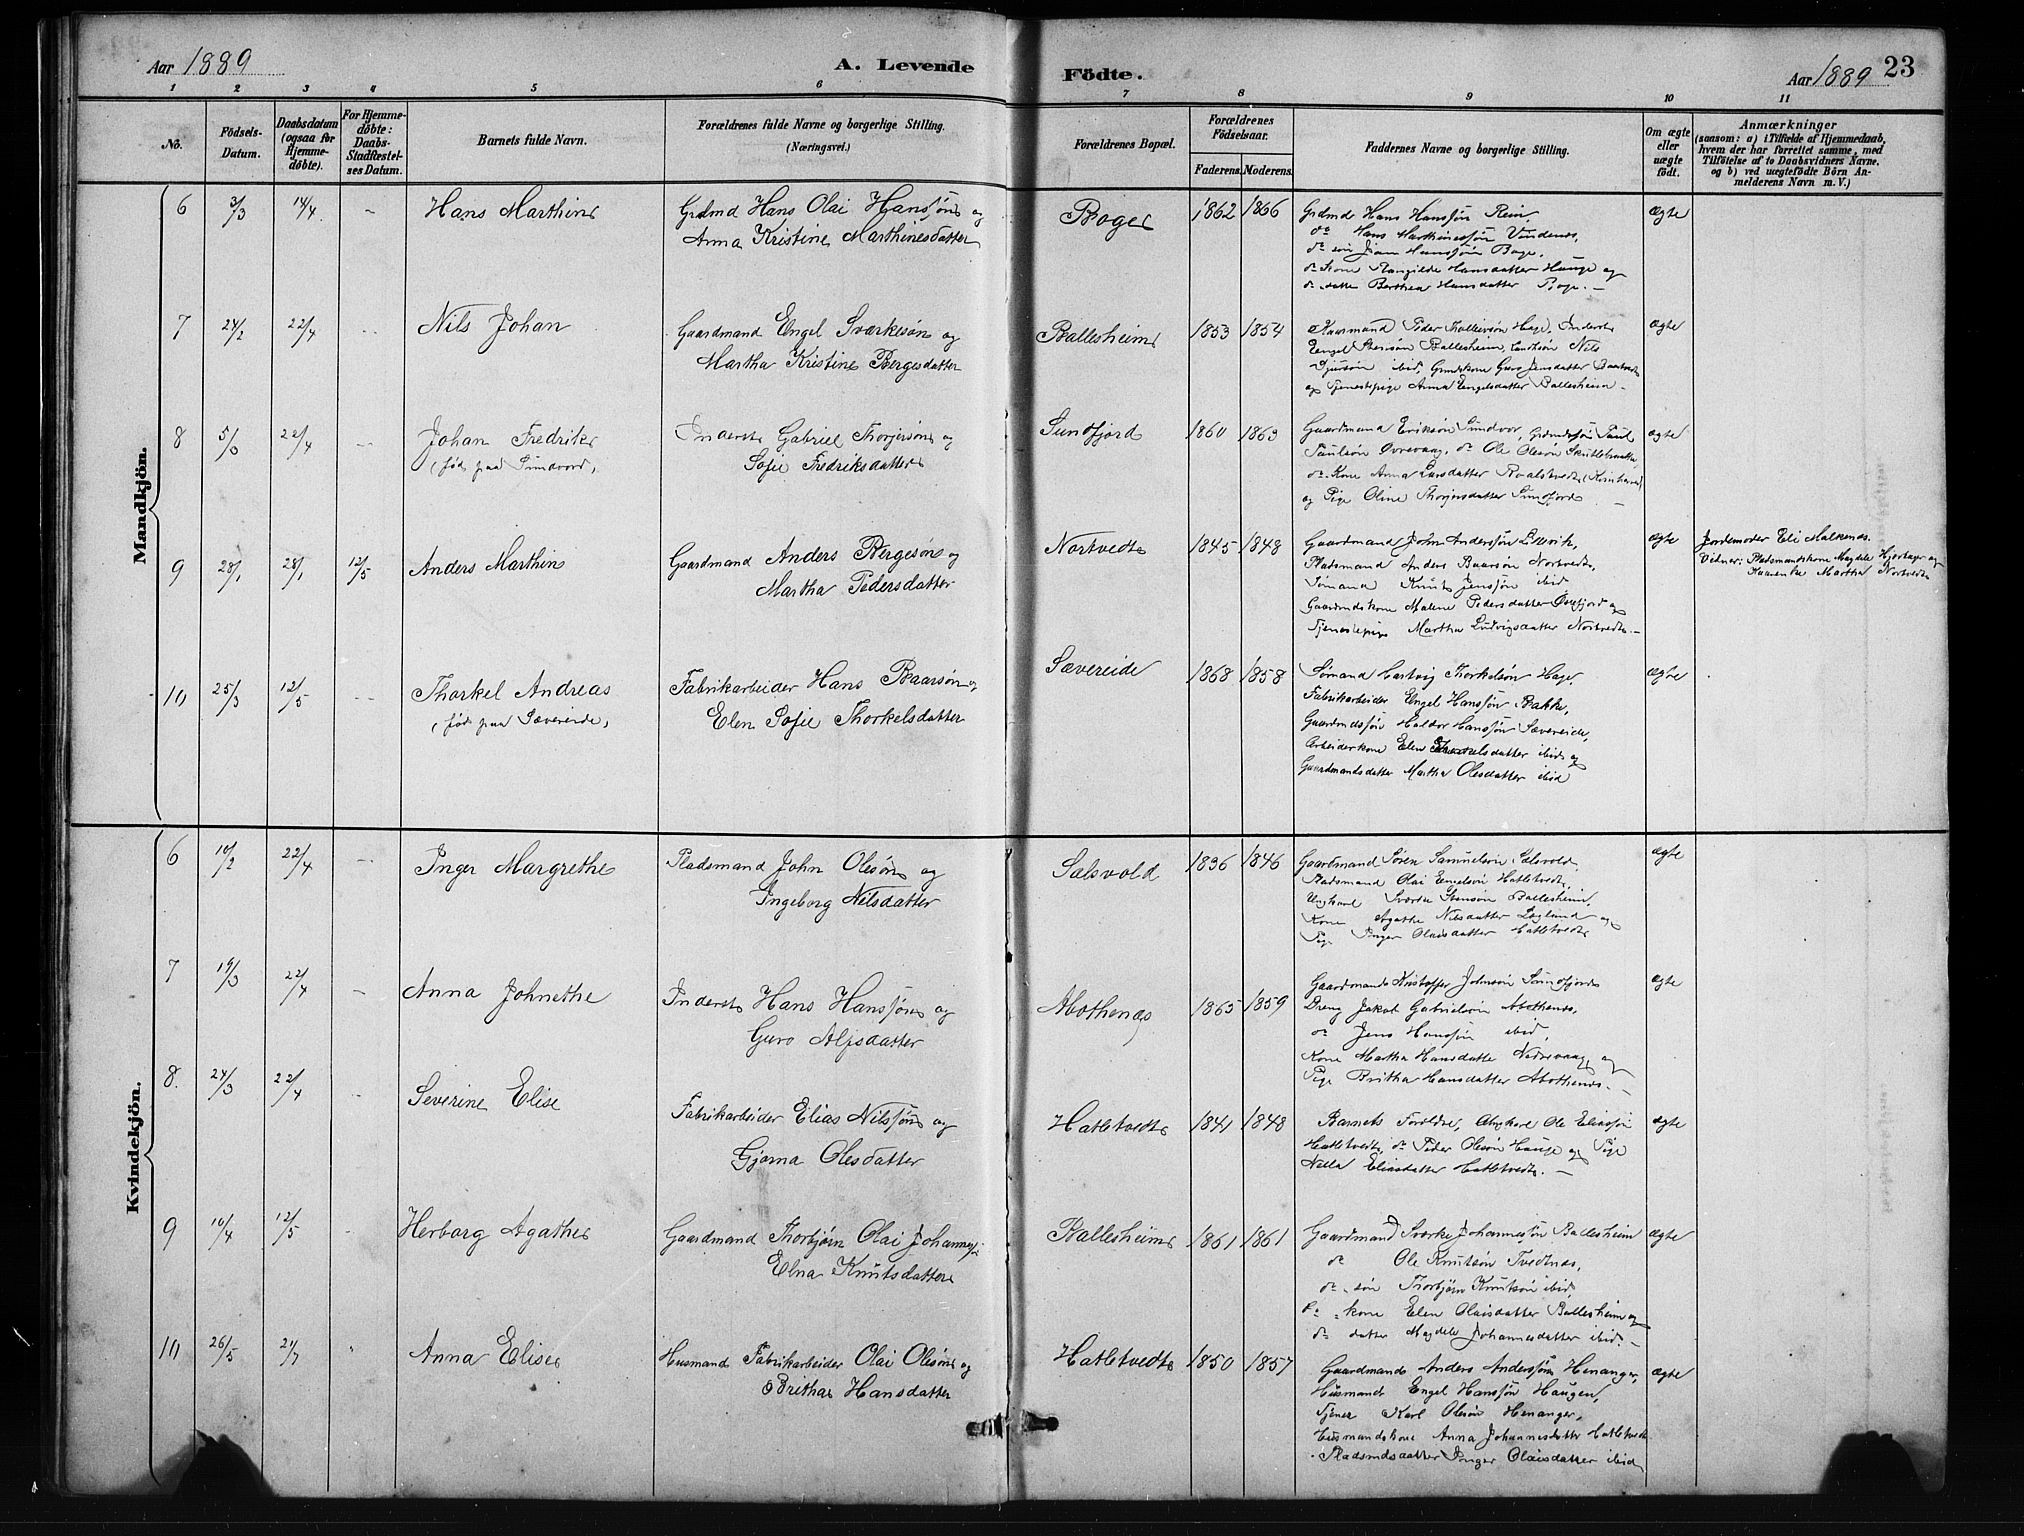 Aar 1889
A. Levende
Födte.
Aar 1889 23
1 2 3 4 5 6 7 8 9 10 11
No.
Födsels-
Datum.
Daabsdatum
(ogsaa for
Hjemme-
döbte).
For Hjemme-
döbte:
Daabs-
Stadfæstel-
ses Datum.
Barnets fulde Navn.
Forældrenes fulde Navne og borgerlige Stilling.
(Næringsvei.)
Forældrenes Bopæl.
Forældrenes
Födselsaar.
Faderens. Moderens.
Faddernes Navne og borgerlige Stilling.
Om ægte
eller
uægte
födt.
Anmærkninger
(saasom: a) i Tilfælde af Hjemmedaab,
hvem der har forrettet samme, med
Tilföielse af to Daabsvidners Navne,
og b) ved uægtefödte Börn An-
melderens Navn m. V.)
Mandkjön.
6 3/3 14/4 - Hans Marthin
Grdmd Hans Olai Hanssøn og
Anna Kristine Marthinesdatter
Boge 1862 1866
Grdmd Hans Hanssøn Rein,
do Hans Marthinessøn Vindenes,
do søn Hanssøn Boge,
do kone Hansdatter Hauge og
do datter Berthea Hansdatter Boge. -
ægte
7 24/2 22/4 Nils Johan
Gaardmand Engel Sværkesøn og
Martha Kristine Børgesdatter
Ballesheim 1853 1854
Peder
Engel Stensøn Ballesheim, Nils
ibid, Guro Jensdatter
og Tjenestepige Anna Engelsdatter Ballesheim -
ægte
8 5/3 22/4 - Johan Fredrik
(født paa Sundvord)
Inderst Gabriel Thorjersøn og
Sofie Fredriksdatter
Sundfjord 1860 1863
Gaardmand Eriksøn Sundvor, Grdmdssøn Paul
Paulsøn Øvrevaag, do Ole Olesøn
do Kone Anna Larsdatter
og Pige Oline Thorjersdatter Sundfjord -
ægte
9 28/1 28/1 12/5 Anders Marthin
Gaardmand Anders Børgesøn og
Martha Pedersdatter
Nortvedt 1845 1848
Gaardmand John Anderssøn
Pladsmand Anders Baarsøn Nortvedt,
Sømand Knut Jenssøn ibid
Gaardmdskone Malene Pedersdatter og
Tjenestepige Martha Ludvigsdatter Nortvedt. -
ægte
Jordemoder Eli Malkenes.
Vidner: Pladsmandskone Magdele og
Martha Nortvedt
10 25/3 12/5 Thorkel Andreas
(født paa Sævereide)
Fabrikarbeider Hans Baarsøn og
Elen Sofie Thorkelsdatter
Sævereide 1868 1858
Sømand Hartvig Thorkelsøn Hage,
Fabrikarbeider Engel Hanssøn Bakke,
Gaardmdssøn Haldor Hanssøn Sævereide,
Arbeiderkone Elen ibid og
Gaardmandsdatter Martha Olesdatter ibid
ægte
Kvindekjön.
6 10/2 22/4 - Inger Margrethe
Pladsmand John Olesøn og
Ingeborg Nilsdatter
Sælsvold 1836 1846
Gaardmand Søren Samuelsøn Sælsvold,
Pladsmand Olai Engelsøn Hatletvedt,
Ungkarl Sværke Stensøn Ballesheim,
Kone Agathe Nilsdatter Løgland og
Pige Inger Olaisdatter Hatletvedt
ægte
7 19/3 22/4 - Anna Johnethe
Inderst Hans Hanssøn og
Guro Alfsdatter
Abothenæs 1865 1859
Gaardmand Kristoffer Johnsøn Sundfjord
Dreng Jakob Gabrielsøn Abothenæs,
do Jens Hanssøn ibid,
Kone Martha Hansdatter Nedrevaage og
Pige Britha Hansdatter Abothenæs. -
ægte
8. 24/3 22/4 Severine Elise
Fabrikarbeider Elias Nilssøn og
Gjorna Olesdatter
Hatletvedt 1841 1848
Barnets Forældre, Ungkarl Ole Eliassøn
Hatletvedt, do Peder Olesøn Hauge og Pige
Nilla Eliasdatter Hatletvedt. -
ægte
9 10/4 12/5 Herborg Agathe
Gaardmand Thorbjørn Olai Johannes
Elna Knutsdatter
Ballesheim 1861 1861
Gaardmand Sværke Johannessøn Ballesheim
do Ole Knutsøn Tvedtnæs,
do søn Thorbjørn Knutsøn ibid,
do kone Elen Olaisdatter Ballesheim og
do datter Magdele Johannesdatter ibid. -
ægte
10 26/5 21/7 " Anna Elise
Husmand Fabrikarbeider Olai Olesøn og
Britha Hansdatter
Hatletvedt 1850 1857
Gaardmand Anders Anderssøn Henanger,
Husmand Engel Hanssøn Haugen,
Tjener Karl Olesøn Henanger,
Husmandskone Anna Johannesdatter Hatletvedt
Pladsmdsdatter Inger Olaisdatter ibid
ægte